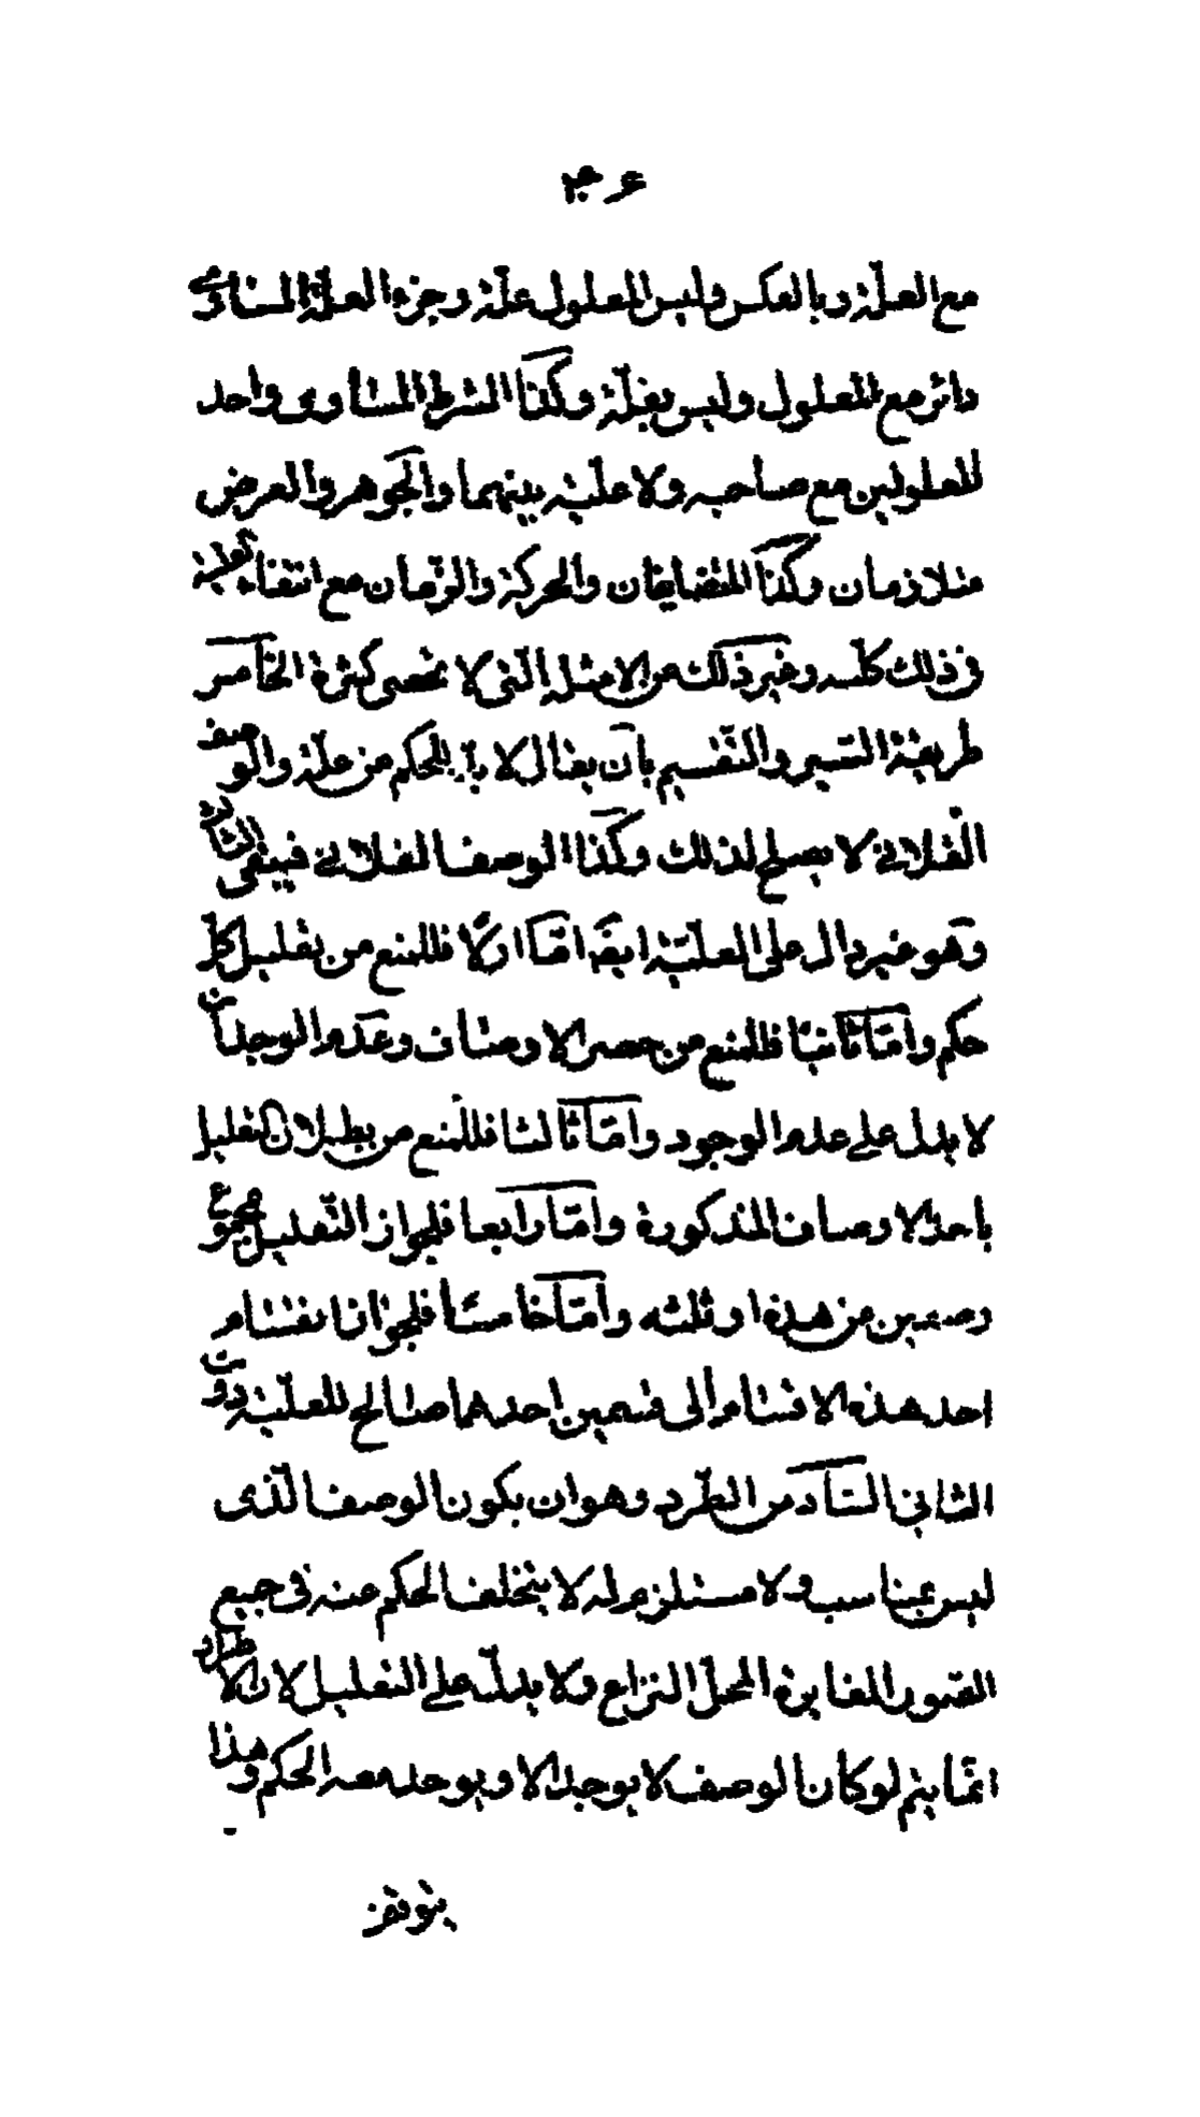 مع العلّة وبالعكس وليس المعلول علّة وجزء العلّة المساوى
دائر مع المعلول وليس بعلّة وكذا الشرط المساوى واحد
المعلولين مع صاحبه ولا علّيّة بينهما والجوهر والعرض
متلازمان وكذا المتضايفان والحركة والزّمان مع انتفاء العلية
فى ذلك كلّه وغير ذلك من الامثلة الّتى لا تحصى كثرة الخامس
طريقة السّبر والتّقسيم بان يقال لا بدّ للحكم من علّة والوصف
الفلانى لا يصلح لذلك وكذا الوصف الفلانى فيبقى الثالث
وهو غير دال على العلّيّة ايضا امّا اوّلا فللمنع من تعليل كلّ
حكم وامّا ثانيا فللمنع من حصر الاوصاف وعدم الوجدان
لا يدل على عدم الوجود وامّا ثالثا فللمنع من بطلان التعليل
باحد الاوصاف المذكورة وامّا رابعا فلجواز التّعليل بمجموع
وصفين من هذه او ثلثه وامّا خامسا فلجواز انقسام
احد هذه الاقسام الى قسمين احدهما صالح للعلّيّة دون
الثانى السّادس الطّرد وهو ان يكون الوصف الّذى
ليس بمناسب ولا مستلزم له لا يتخلف الحكم عنه فى جميع
الصّور المغايرة المحلّ النزاع ولا يدلّ على التعليل لان الاطراد
انّما يتم لو كان الوصف لا يوجد الا ويوجد معه الحكم وهذا
يتوقف